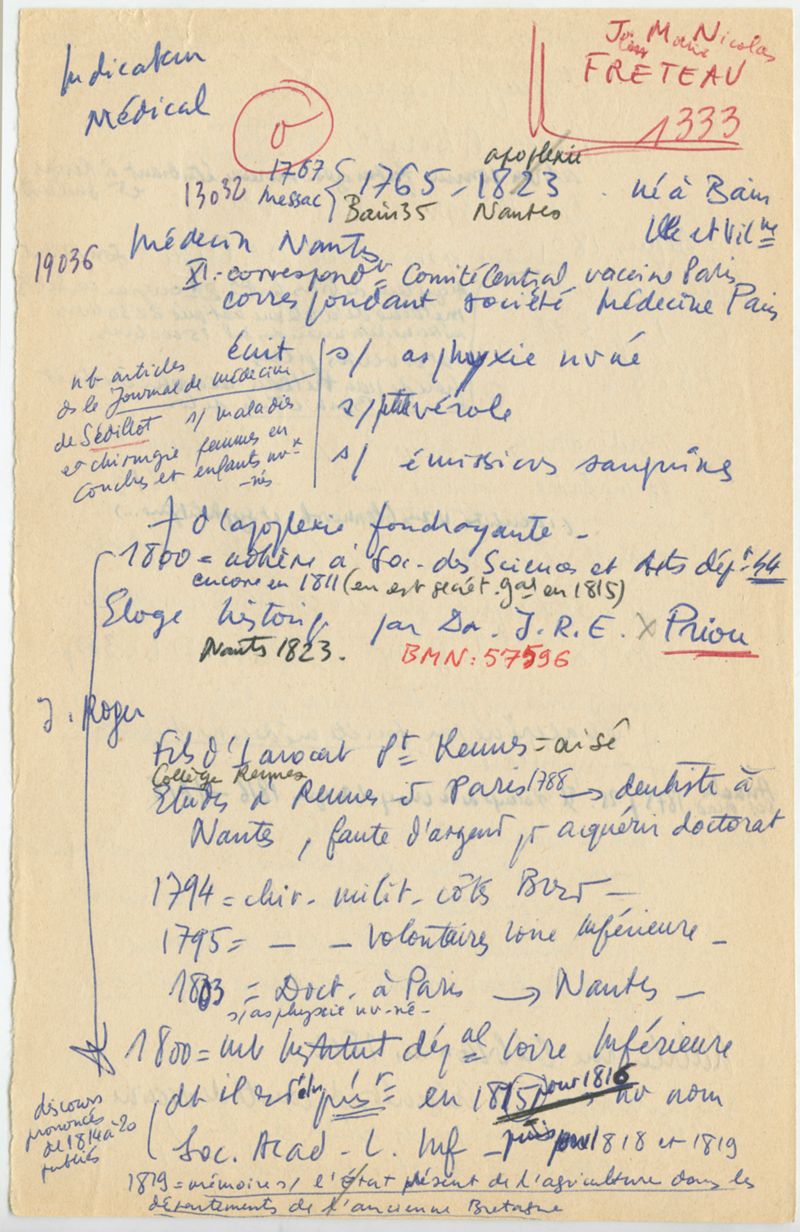 Indicateur
Médical
o
Jean Marie Nicolas
FRETEAU
1333
apoplexie
13032 1767 Messac { 1765 - 1823 . né à Bain
Bain 35 Nantes
Ille et Vilne
19036 Médecin Nantes
XI = correspondt = Comité Central vaccine Paris
correspondant société Médecine Paris
écrit s/ asphyxie nv né
s/ ptte vérole
s/ émissions sanguines
nb articles
ds le Journal de médecine
de Sédillot s/ maladies
et chirurgie femmes en
couches et enfants nvx
-nés
† d'apoplexie foudroyante -
1800 = adhère à Soc. des Sciences et Arts dépt 44
encore en 1811 (en est secrét. gal en 1815)
Eloge historiq. par Dr. J. R. E. X Priou
Nants 1823. BMN: 57596
J. Roger
Fils d'1 avocat Pt Rennes = aisé
Collège Rennes
Etudes à Rennes à Paris 1788 → dentiste à
Nantes, faute d'argent pr acquérir doctorat
1794 = chir. milit. côtes Brest -
1795 = — - Volontaires Loire Inférieure -
1803 = Doct. à Paris → Nantes -
s/ asphyxie nv-né -
1800 = mb Institut dépal Loire Inférieure
dt il est élu prést = en 1815 pour 1816 nv nom
Soc. Acad. L. Inf - puis pour 1818 et 1819
discours
prononcés
de 1814 à 20
publiés
1819 = mémoire s/ l'état présent de l'agriculture dans les
départements de l'ancienne Bretagne